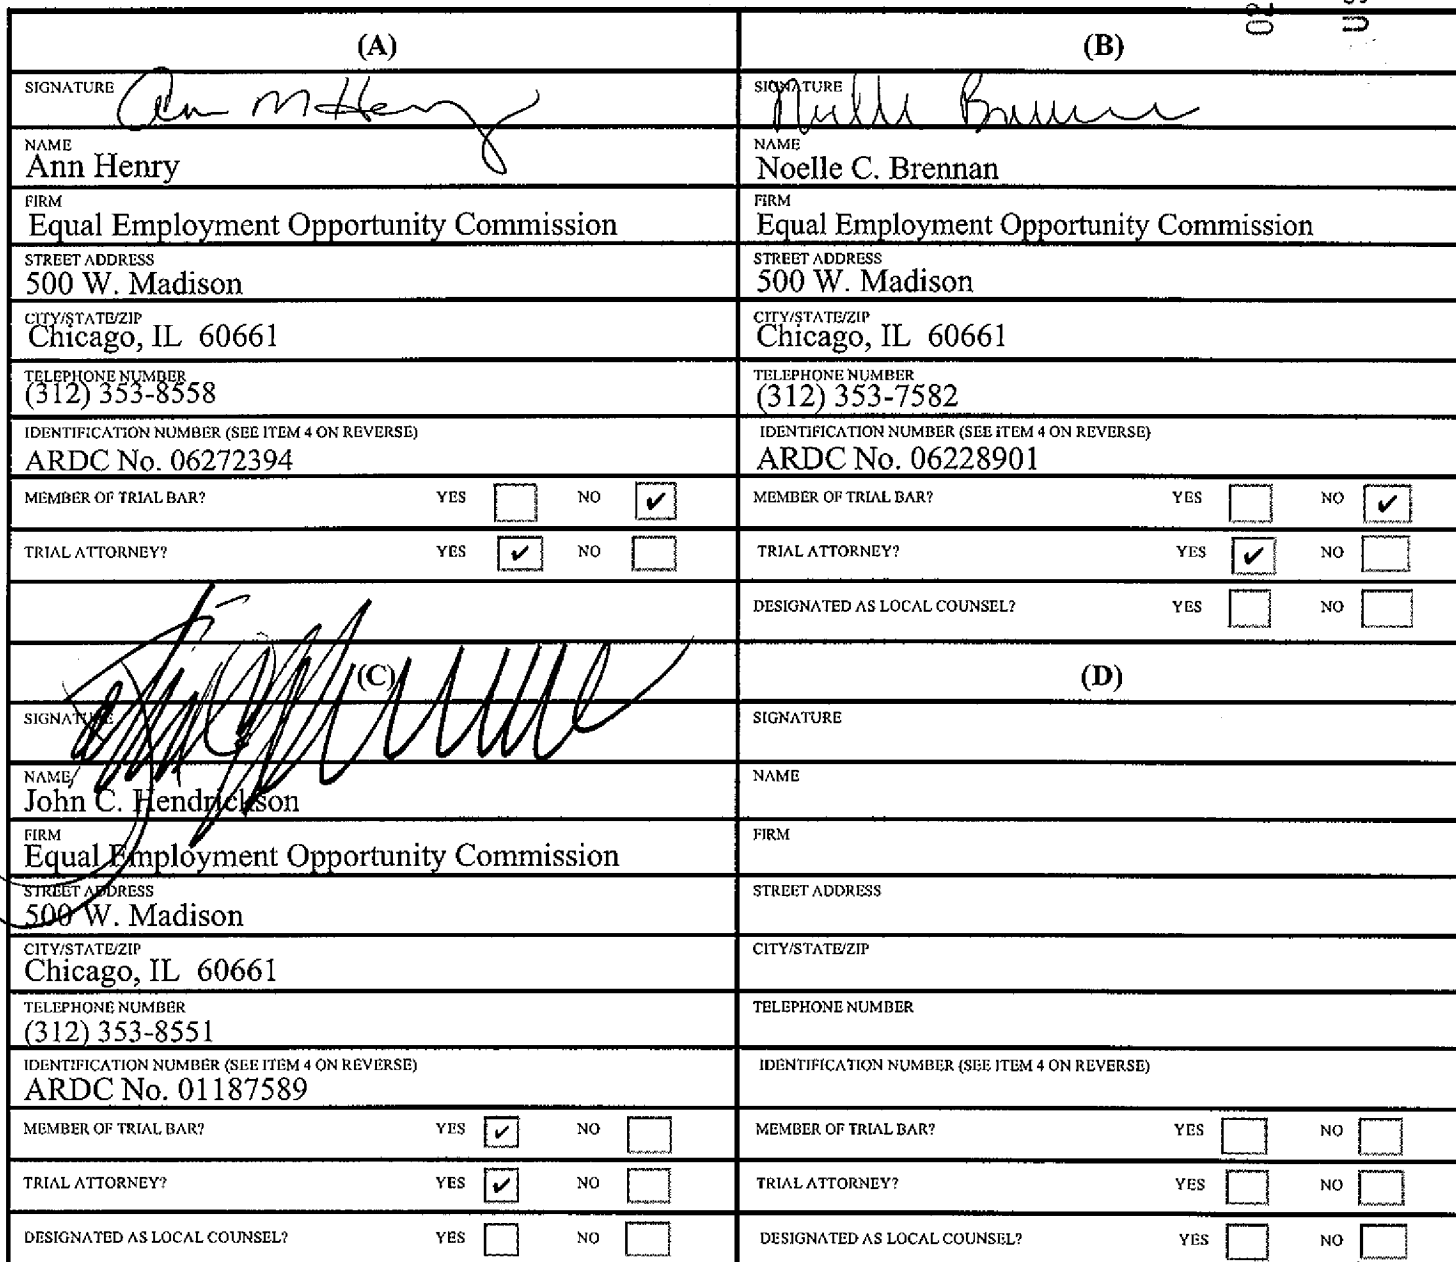 (A)
SIGNATURE Ann M Henry
NAME
Ann Henry
FIRM
Equal Employment Opportunity Commission
STREET ADDRESS
500 W. Madison
CITY/STATE/ZIP
Chicago, IL 60661
TELEPHONE NUMBER
(312) 353-8558
IDENTIFICATION NUMBER (SEE ITEM 4 ON REVERSE)
ARDC No. 06272394
MEMBER OF TRIAL BAR? YES NO ✔
TRIAL ATTORNEY? YES ✔ NO
(B)
SIGNATURE Noelle Brennan
NAME
Noelle C. Brennan
FIRM
Equal Employment Opportunity Commission
STREET ADDRESS
500 W. Madison
CITY/STATE/ZIP
Chicago, IL 60661
TELEPHONE NUMBER
(312) 353-7582
IDENTIFICATION NUMBER (SEE ITEM 4 ON REVERSE)
ARDC No. 06228901
MEMBER OF TRIAL BAR? YES NO ✔
TRIAL ATTORNEY? YES ✔ NO
DESIGNATED AS LOCAL COUNSEL? YES NO
(C)
SIGNATURE
NAME
John C. Hendrickson
FIRM
Equal Employment Opportunity Commission
STREET ADDRESS
500 W. Madison
CITY/STATE/ZIP
Chicago, IL 60661
TELEPHONE NUMBER
(312) 353-8551
IDENTIFICATION NUMBER (SEE ITEM 4 ON REVERSE)
ARDC No. 01187589
MEMBER OF TRIAL BAR? YES ✔ NO
TRIAL ATTORNEY? YES ✔ NO
DESIGNATED AS LOCAL COUNSEL? YES NO
(D)
SIGNATURE
NAME
FIRM
STREET ADDRESS
CITY/STATE/ZIP
TELEPHONE NUMBER
IDENTIFICATION NUMBER (SEE ITEM 4 ON REVERSE)
MEMBER OF TRIAL BAR? YES NO
TRIAL ATTORNEY? YES NO
DESIGNATED AS LOCAL COUNSEL? YES NO